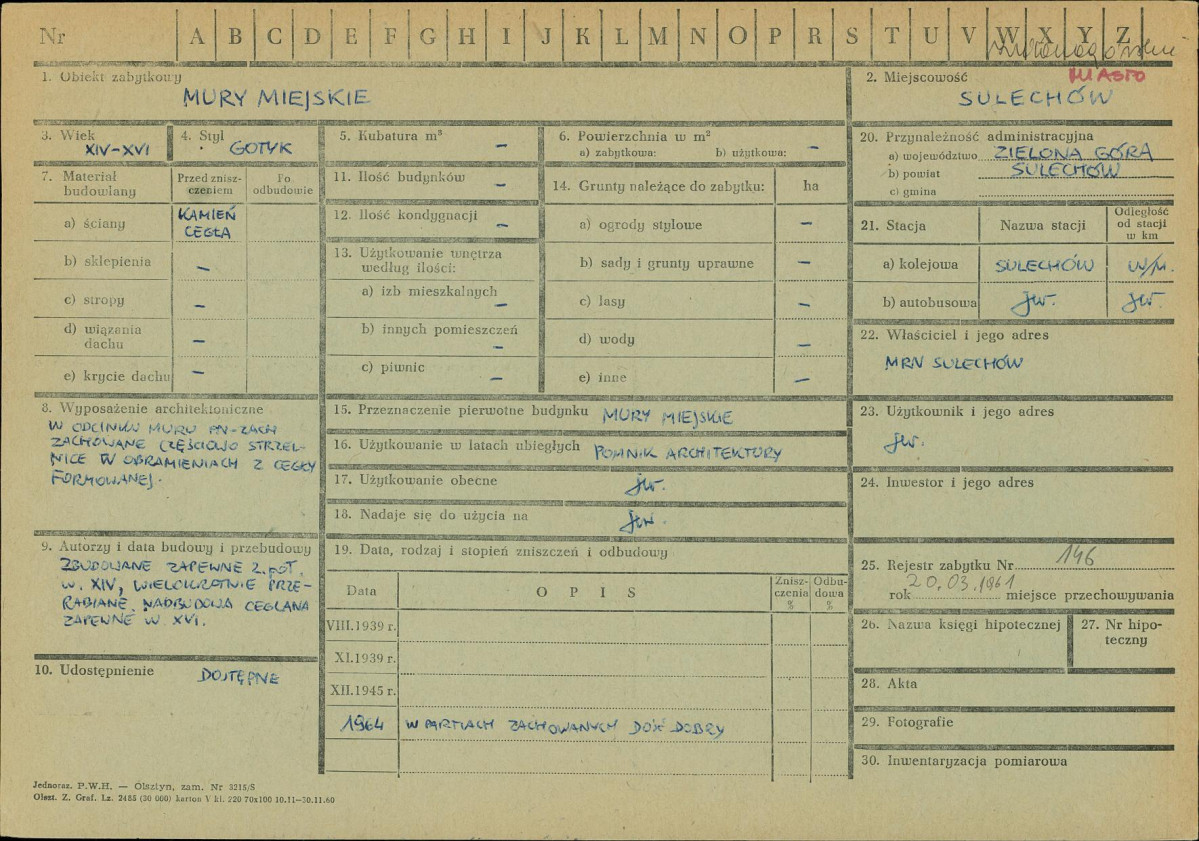 Nr A B C D E F G H I J K L M N O P R S T U V W X Y Z
1. Obiekt zabytkowy
MURY MIEJSKIE
2. Miejscowość
MIASTO
SULECHÓW
3. Wiek
XIV-XVI
4. Styl
GOTYK
5. Kubatura m³
–
6. Powierzchnia w m²
a) zabytkowa: b) użytkowa: –
7. Materiał budowlany
Przed zniszczeniem
Po odbudowie
a) ściany
KAMIEŃ
CEGŁA
b) sklepienia –
c) stropy –
d) wiązania dachu –
e) krycie dachu –
8. Wyposażenie architektoniczne
W ODCINKU MURU PN-ZACH
ZACHOWANE CZĘŚCIOWO STRZEL-
NICE W OBRAMIENIACH Z CEGŁY
FORMOWANEJ.
9. Autorzy i data budowy i przebudowy
ZBUDOWANE ZAPEWNE 2. POŁ.
W. XIV, WIELOKROTNIE PRZE-
RABIANE. NADBUDOWA CEGLANA
ZAPEWNE W. XVI.
10. Udostępnienie
DOSTĘPNE
11. Ilość budynków –
12. Ilość kondygnacji –
13. Użytkowanie wnętrza
według ilości:
a) izb mieszkalnych –
b) innych pomieszczeń –
c) piwnic –
14. Grunty należące do zabytku: ha
a) ogrody stylowe –
b) sady i grunty uprawne –
c) lasy –
d) wody –
e) inne –
15. Przeznaczenie pierwotne budynku MURY MIEJSKIE
16. Użytkowanie w latach ubiegłych POMNIK ARCHITEKTURY
17. Użytkowanie obecne jw.
18. Nadaje się do użycia na jw.
19. Data, rodzaj i stopień zniszczeń i odbudowy
Data
O P I S
Zniszczenia %
Odbudowa %
VIII.1939 r.
XI.1939 r.
XII.1945 r.
1964 W PARTIACH ZACHOWANYCH DOŚĆ DOBRY
20. Przynależność administracyjna
a) województwo ZIELONA GÓRA
b) powiat SULECHÓW
c) gmina
21. Stacja
Nazwa stacji
Odległość od stacji w km
a) kolejowa SULECHÓW W/M.
b) autobusowa jw. jw.
22. Właściciel i jego adres
MRN SULECHÓW
23. Użytkownik i jego adres
jw.
24. Inwestor i jego adres
25. Rejestr zabytku Nr 146
rok 20.03.1961 miejsce przechowywania
26. Nazwa księgi hipotecznej
27. Nr hipoteczny
28. Akta
29. Fotografie
30. Inwentaryzacja pomiarowa
Jednoraz. P.W.H. — Olsztyn, zam. Nr 3215/S
Olszt. Z. Graf. Lz. 2485 (30 000) karton V kl. 220 70x100 10.11—30.11.60